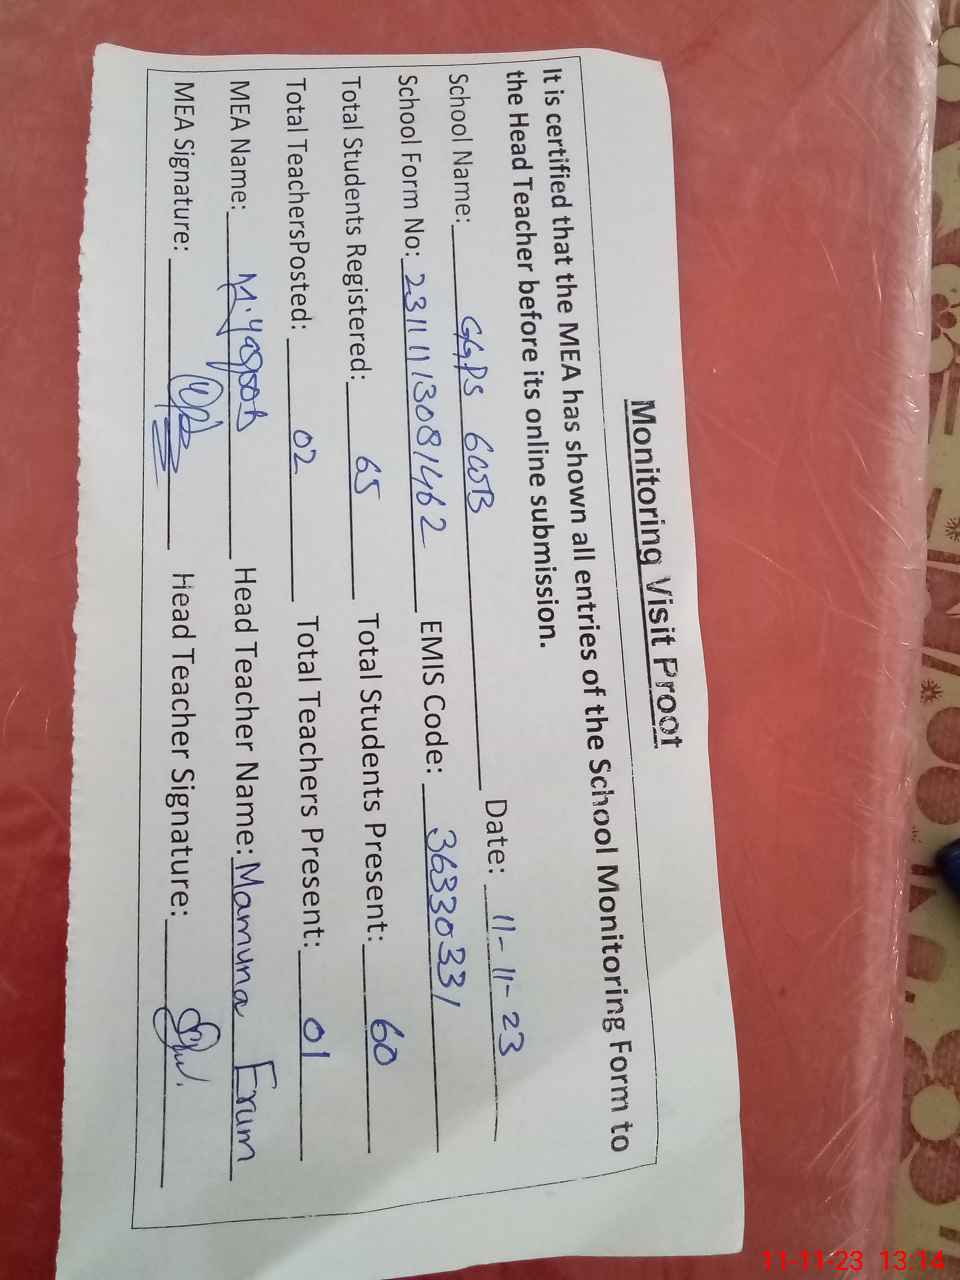 Monitoring Visit Proof
It is certified that the MEA has shown all entries of the School Monitoring Form to
the Head Teacher before its online submission.
School Name: GGPS 6WB Date: 11-11-23
School Form No: 2311113081462 EMIS Code: 36330331
Total Students Registered: 65 Total Students Present: 60
Total TeachersPosted: 02 Total Teachers Present: 01
MEA Name: M. Yaqoob Head Teacher Name: Mamuna Erum
MEA Signature: Head Teacher Signature:
11-11-23 13:14